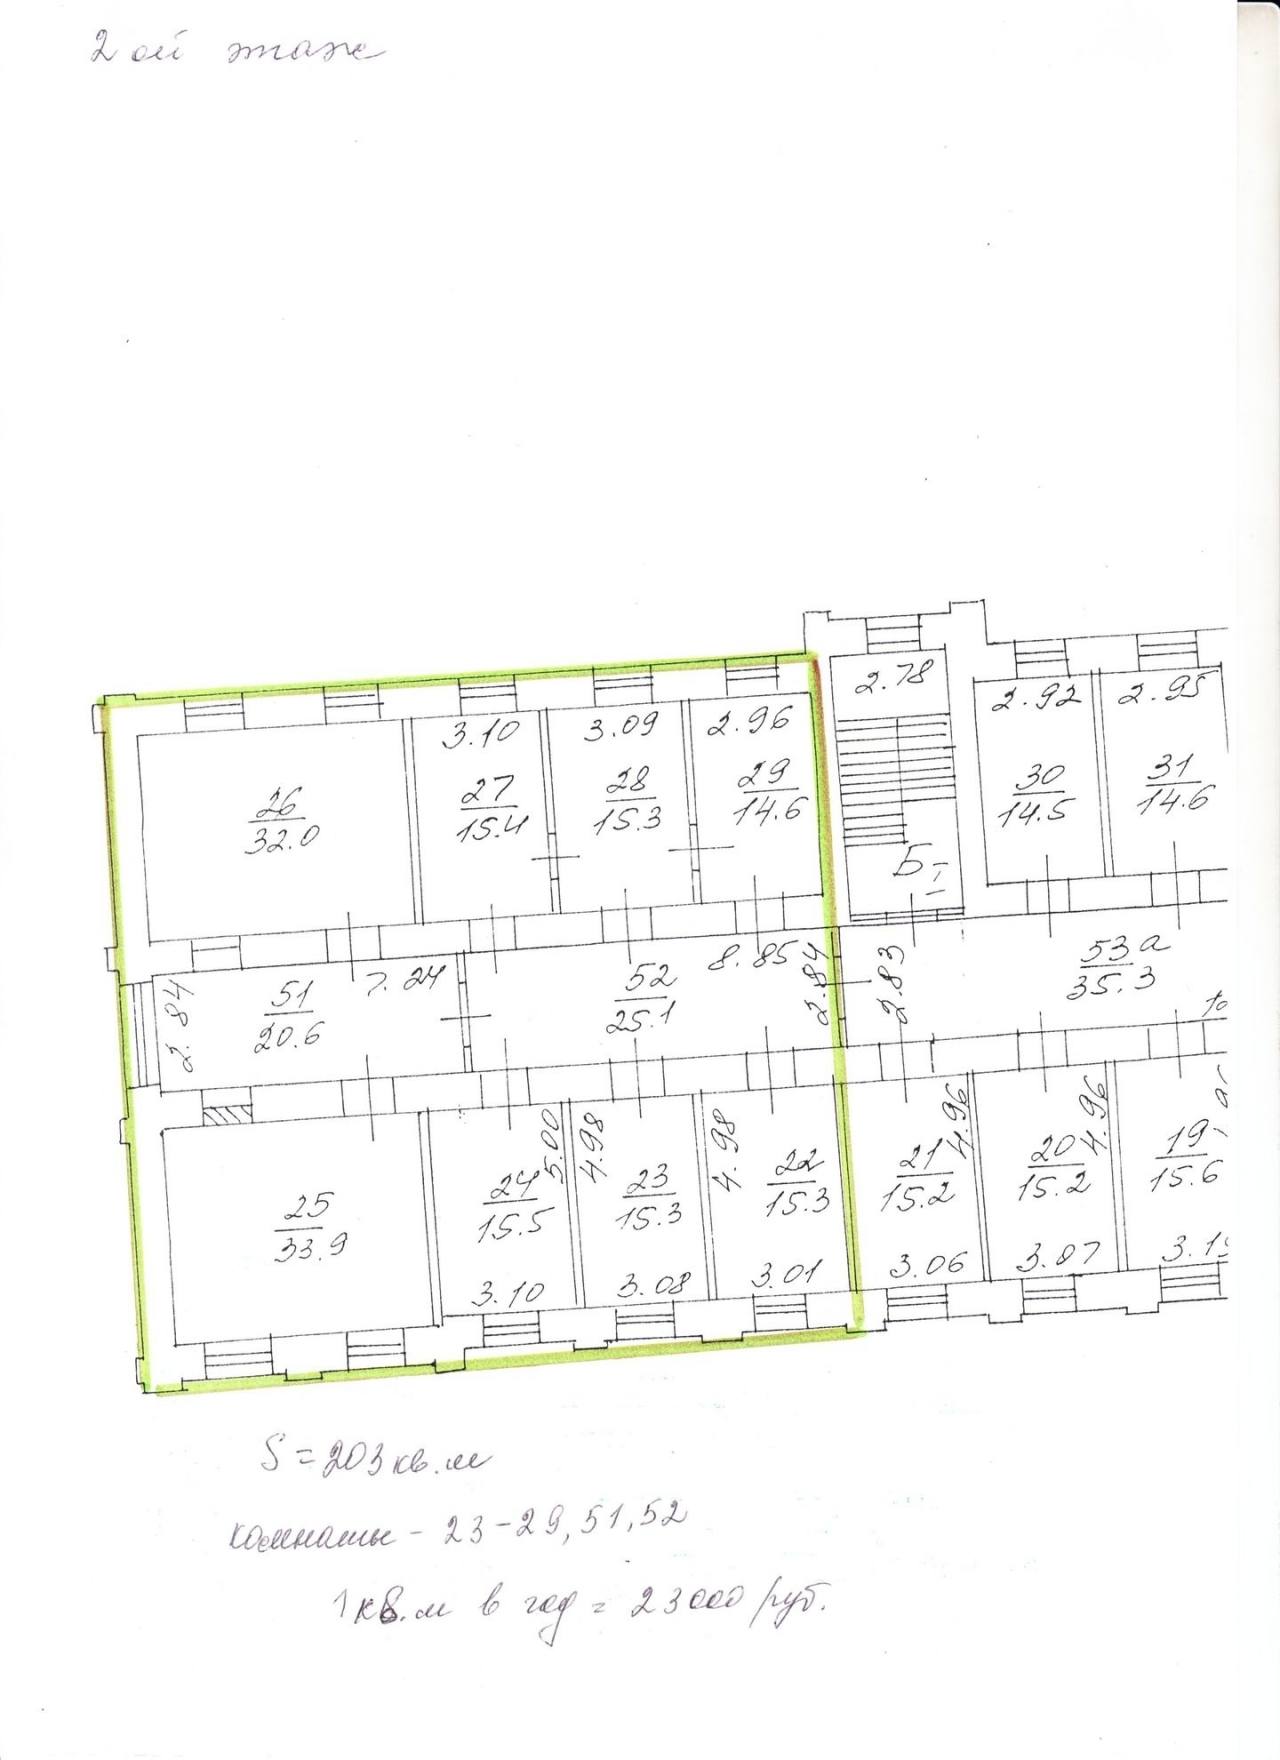 2ой этаж
2.78
2.92
2.95
3.10
3.09
2.96
26
32.0
27
15.4
28
15.3
29
14.6
30
14.5
31
14.6
Б-I
7.24
8.85
2.84
51
20.6
52
25.1
2.84
2.83
53а
35.3
5.00
4.98
4.98
4.96
4.96
25
33.9
24
15.5
23
15.3
22
15.3
21
15.2
20
15.2
19
15.6
3.10
3.08
3.01
3.06
3.07
S = 203 кв.м
комнаты - 23-29, 51, 52
1 кв.м в год = 23000 руб.